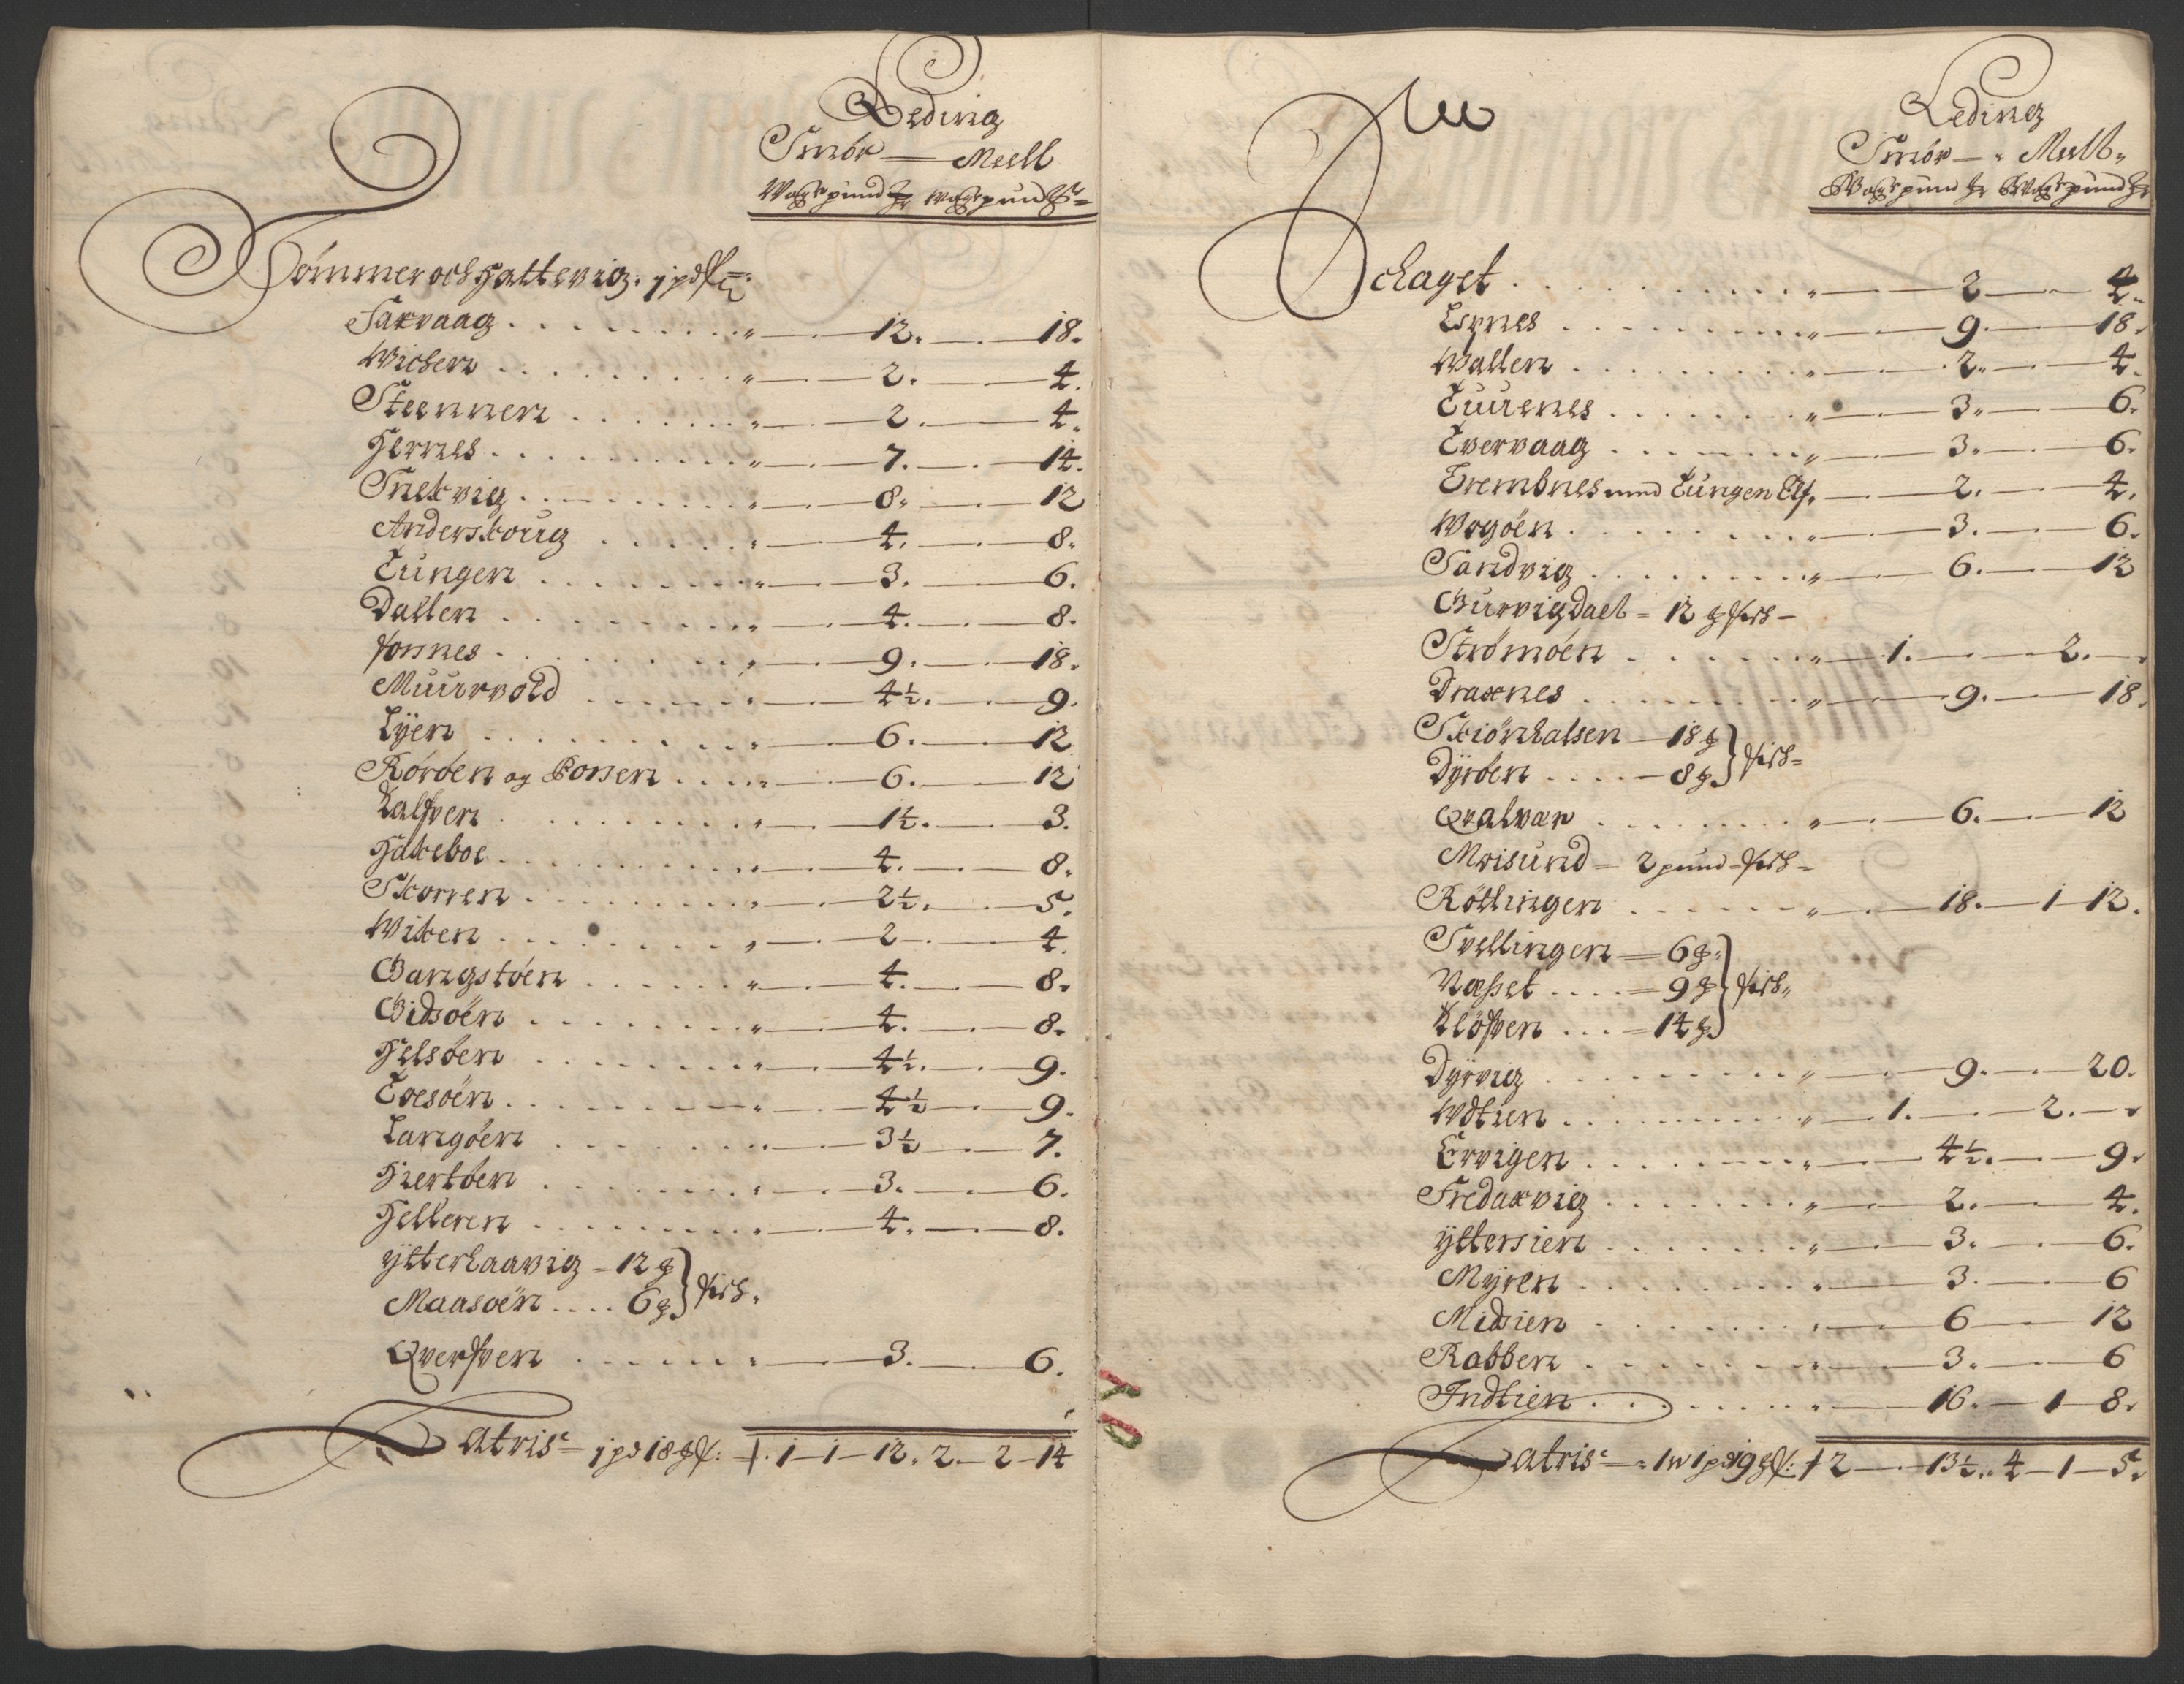 Leding
Smör — Meell
Wog pund pund
Sömmer och Hattevig: 1 pd
Saxvaag . . . . " — 12. — 18.
Wichen . . . . " — 2. — 4.
Steenneren . . . . " — 2. — 4.
Hernes . . . . " — 7. — 14.
Snekvig . . . . " — 8. — 12
Anderskoug . . . . " — 4. — 8.
Tungen . . . . " — 3. — 6.
Dallen . . . . " — 4. — 8.
fornes . . . . " — 9. — 18.
Muurvold . . . . " — 4½. — 9.
Lyen . . . . " — 6. — 12
Röröen og Porsen . . . . " — 6. — 12
Kalfven . . . . " — 1½. — 3.
Hakeboe . . . . " — 4. — 8.
Skorren . . . . " — 2½. — 5.
Wiken . . . . " — 2. — 4.
Gangstöen . . . . " — 4. — 8.
Gidsöen . . . . " — 4. — 8.
Helsöen . . . . " — 4½. — 9.
Tvesöen . . . . " — 4½ — 9.
Langöen . . . . " — 3½ — 7.
Hertöen . . . . " — 3. — 6.
Helleren . . . . " — 4. — 8.
ytterhaavig — 12
Maasöen . . . . 6 } fisk.
Qverfven . . . . " — 3. — 6.
Latris — 1 pd 18 — 1 — 1 — 12. 2. — 2 — 14
Leding
Smör — Mell
Wog pund Wog pund
Schaget . . . . " — 2 — 4.
Lernes . . . . " — 9. — 18.
Wallen . . . . " — 2. — 4.
Tuurnes . . . . " — 3. — 6.
Tvervaag . . . . " — 3. — 6.
Trembnes med Tungen — 2. — 4.
Wogöen . . . . " — 3. — 6.
Sandvig . . . . " — 6. — 12
Gurvigdael = 12 fisk —
Strömöen . . . . " — 1. — 2. —
Draxnes . . . . " — 9. — 18.
Skiönhalsen — 18
Dyröen . . . . — 8 } fisk
Qvalvær . . . . " — 6. — 12
Mosisund — 2 pund — fisk
Röttingen . . . . " — 18. — 1 — 12.
Svellingen — 6
Næsset . . . . — 9 } fisk
Klöfven . . . — 14
Dyrvig . . . . " — 9. — 20.
Wdtien . . . . " — 1. — 2. —
Ervigen . . . . " — 4½. — 9.
Fredaxvig . . . . " — 2. — 4.
yttersien . . . . " — 3. — 6.
Myren . . . . " — 3. — 6
Midsien . . . . " — 6 — 12
Rabben . . . . " — 3. — 6
Indtien . . . . " — 16. — 1 — 8.
Latris — 1 w 1 pd 19 — 2 — 13½. 4 — 1 — 5.